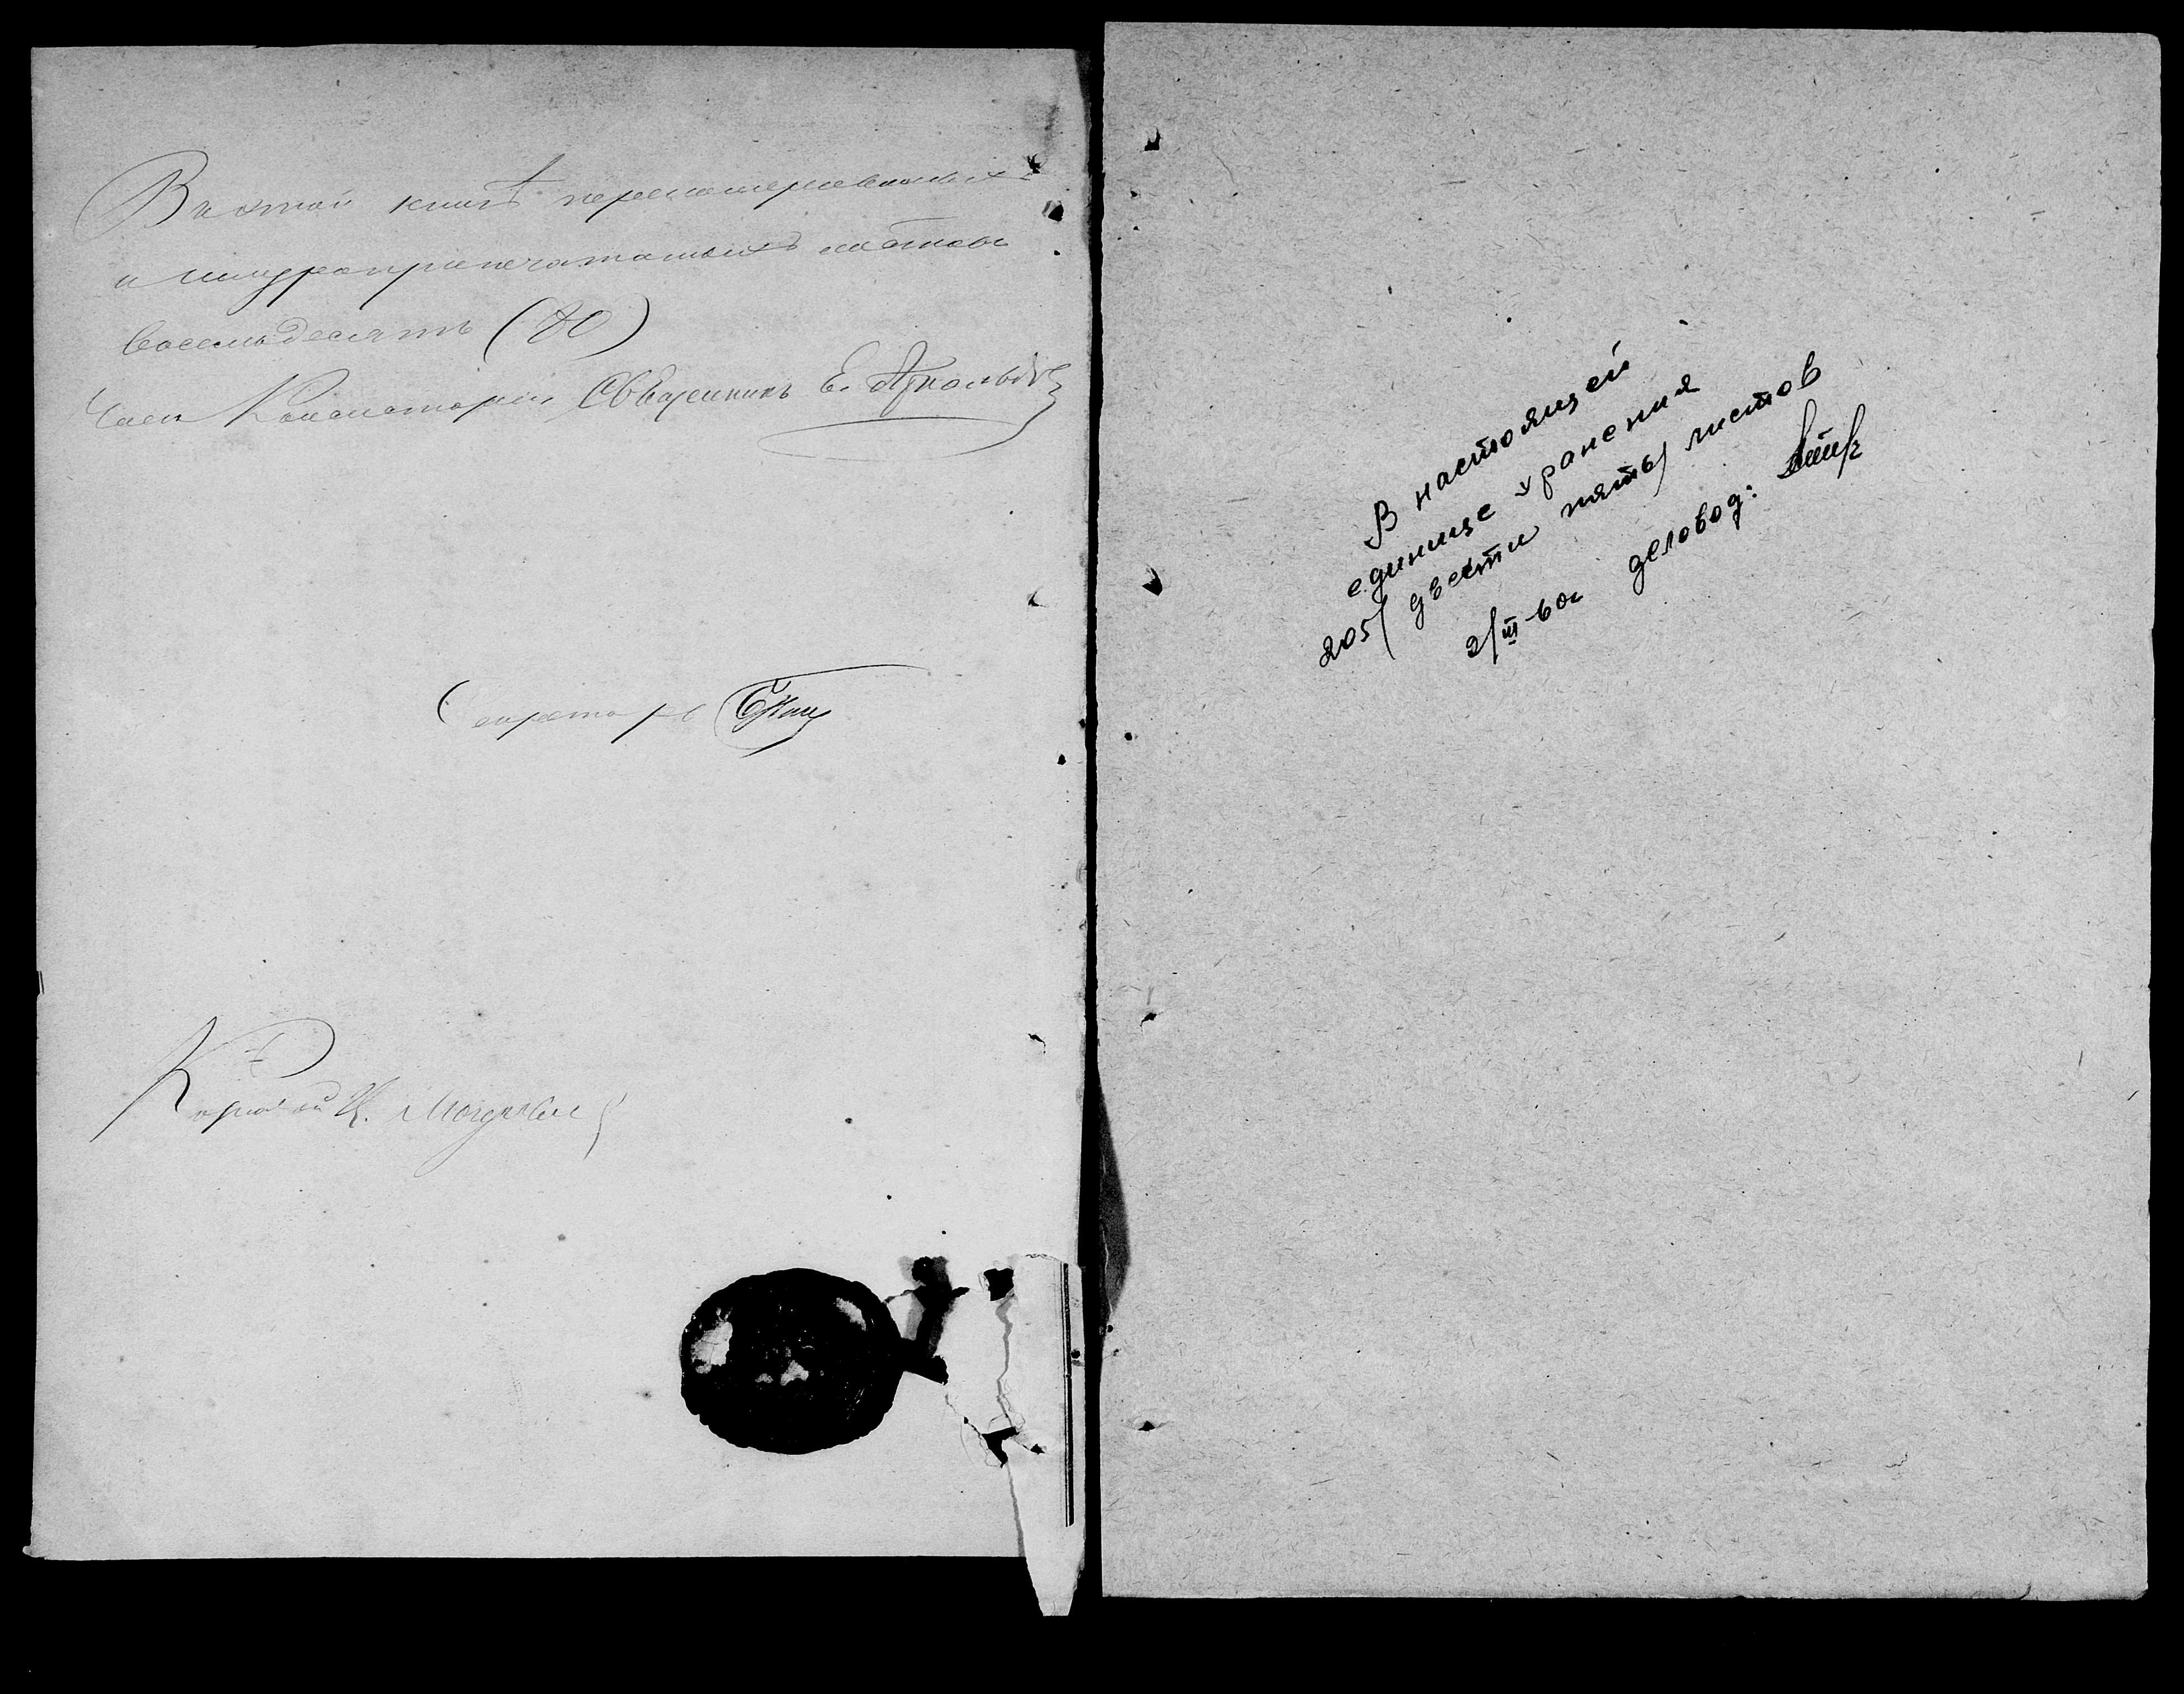 В этой книгѣ перенумерованныхъ
и шнуроприпечатанныхъ листовъ
восемьдесятъ (80)
Членъ Консисторіи, Священникъ Е.
Секретарь
В настоящей
единице хранения
205/ двести пять/ листов
2/III-60г деловод: